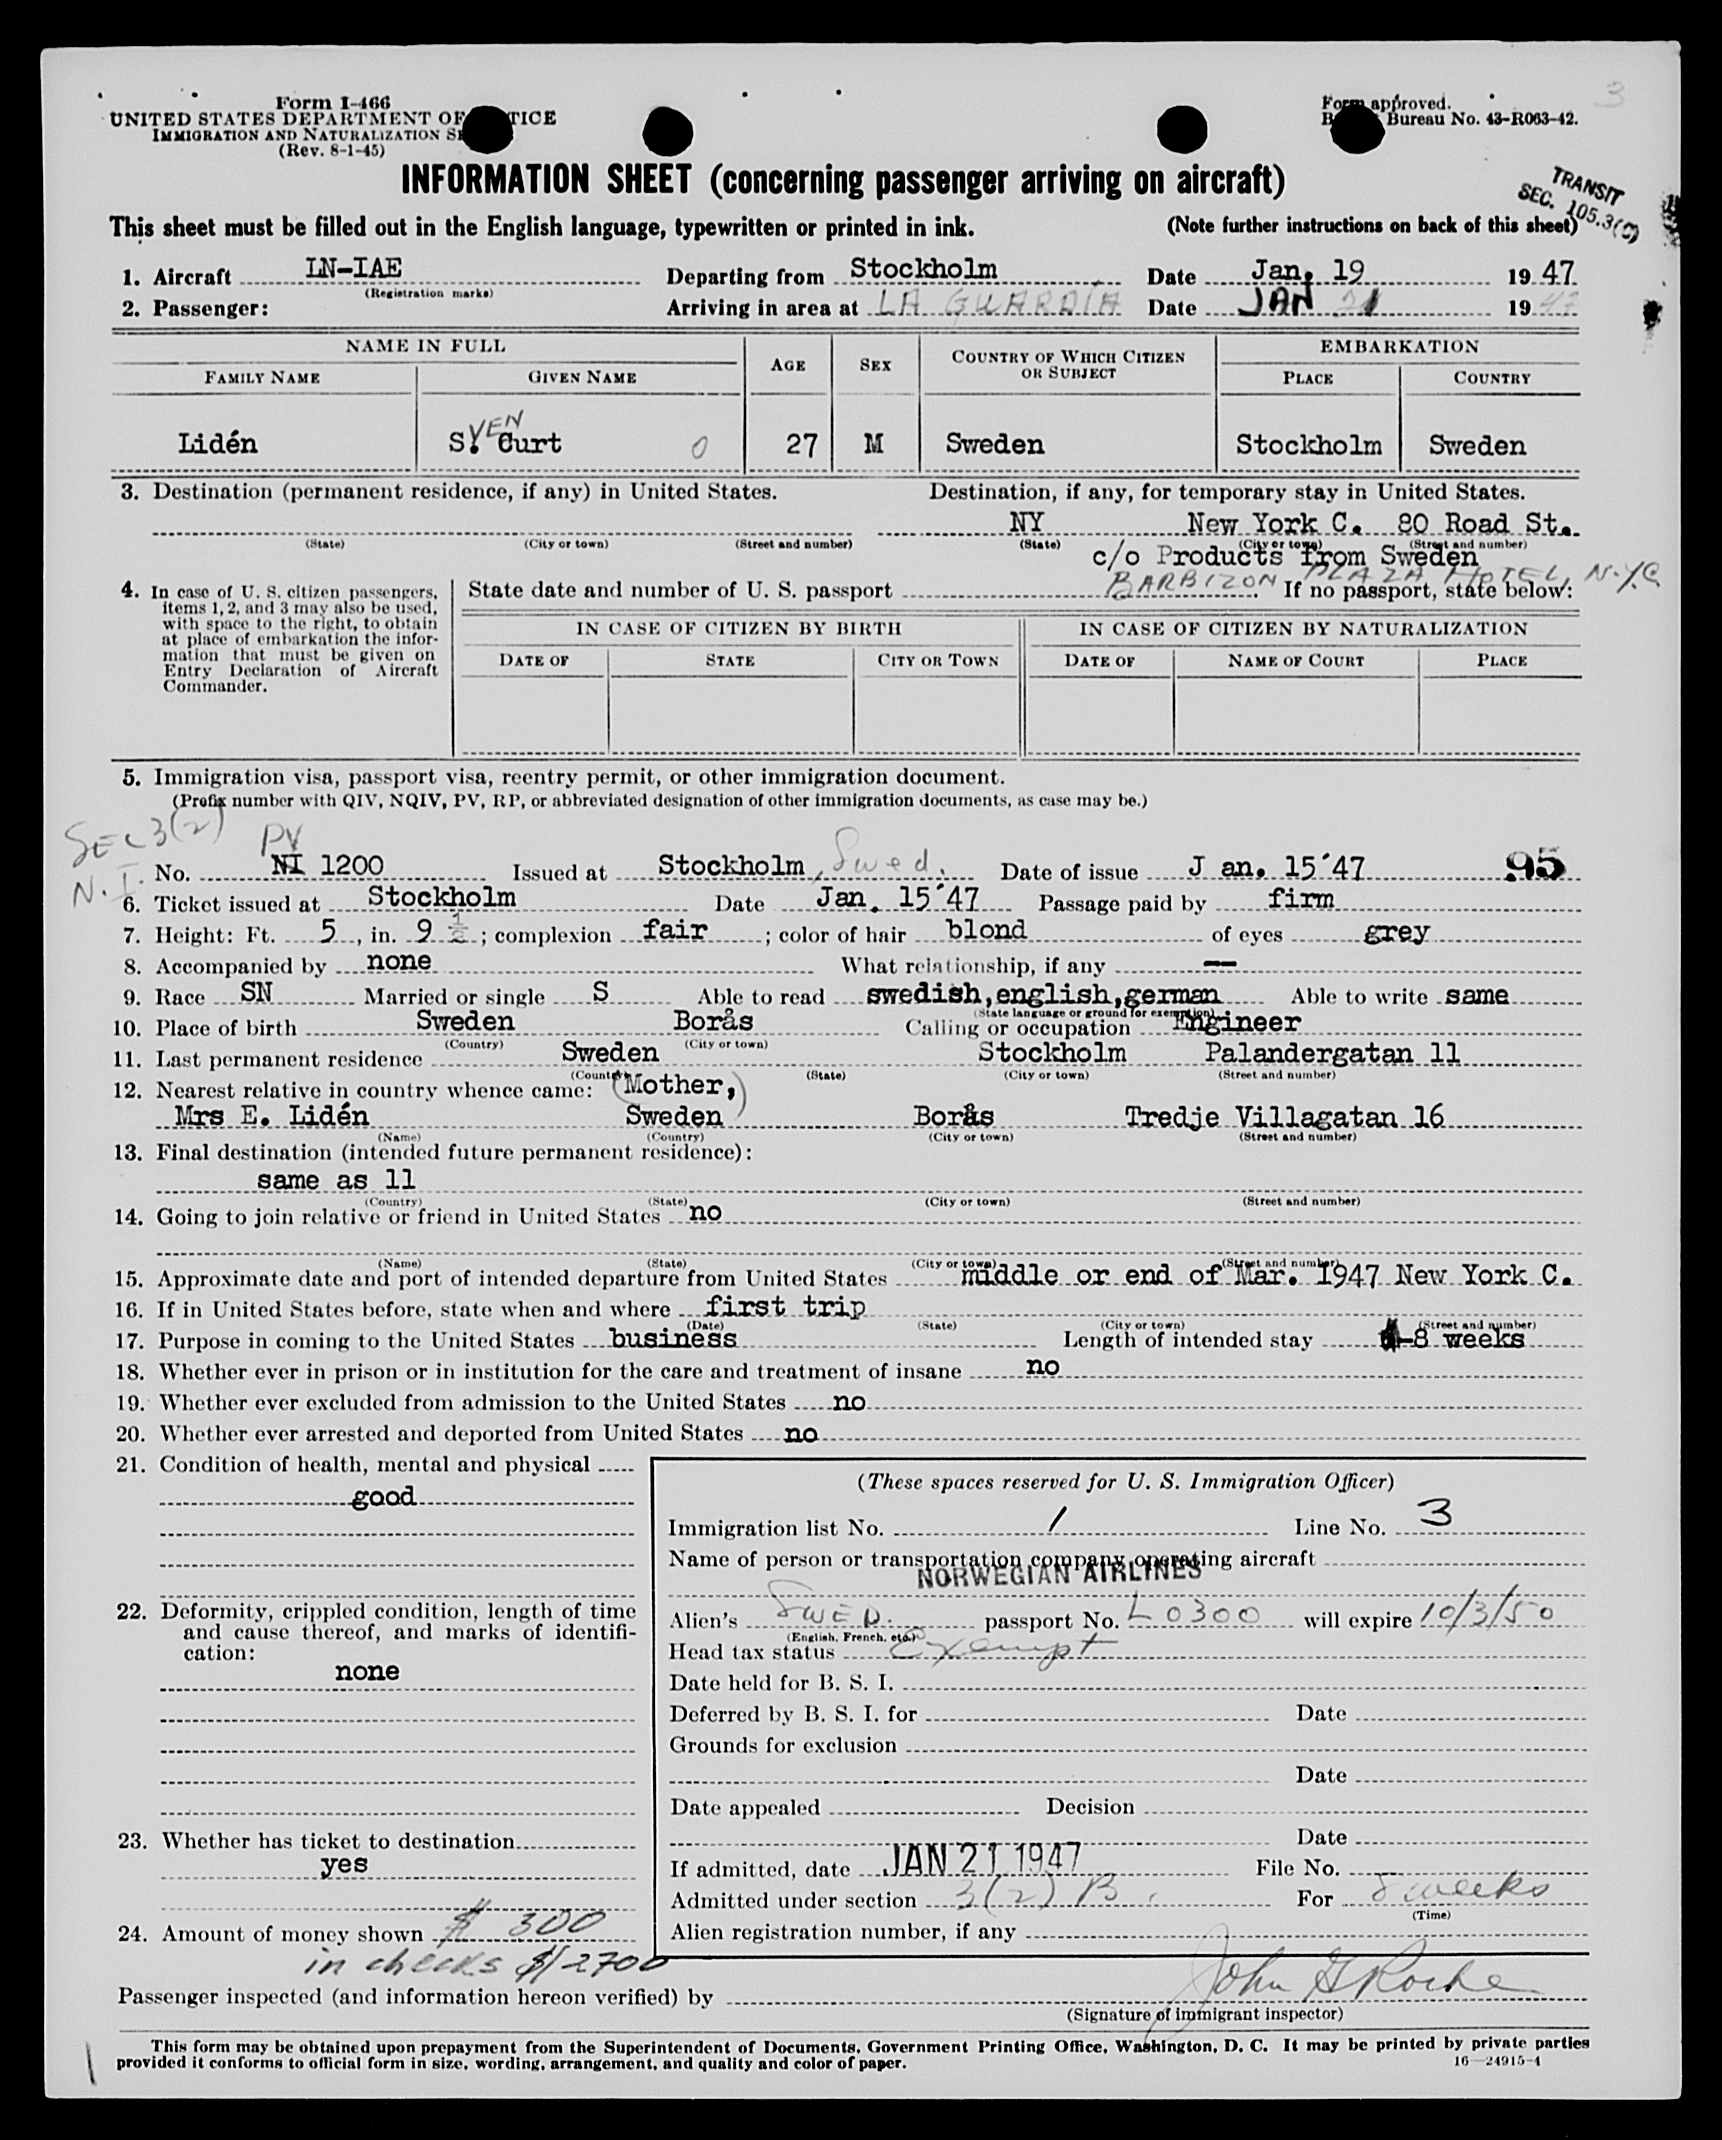 3
Form I-466
UNITED STATES DEPARTMENT OF TICE
IMMIGRATION AND NATURALIZATION SE
(Rev. 8-1-45)
Form approved.
B Bureau No. 43-R063-42.
INFORMATION SHEET (concerning passenger arriving on aircraft)
TRANSIT
SEC. 105.3(C)
This sheet must be filled out in the English language, typewritten or printed in ink. (Note further instructions on back of this sheet)
1. Aircraft LN-IAE Departing from Stockholm Date Jan. 19 1947
(Registration marks)
2. Passenger: Arriving in area at LA GUARDIA Date JAN 21 1947
NAME IN FULL AGE SEX COUNTRY OF WHICH CITIZEN OR SUBJECT EMBARKATION
FAMILY NAME GIVEN NAME PLACE COUNTRY
Lidén S. VEN Curt 0 27 M Sweden Stockholm Sweden
3. Destination (permanent residence, if any) in United States. Destination, if any, for temporary stay in United States.
NY New York C. 80 Road St.
(State) (City or town) (Street and number) (State) (City or town) (Street and number)
c/o Products from Sweden
BARBIZON PLAZA HOTEL, N.Y.C
4. In case of U. S. citizen passengers, items 1, 2, and 3 may also be used, with space to the right, to obtain at place of embarkation the information that must be given on Entry Declaration of Aircraft Commander.
State date and number of U. S. passport . If no passport, state below:
IN CASE OF CITIZEN BY BIRTH IN CASE OF CITIZEN BY NATURALIZATION
DATE OF STATE CITY OR TOWN DATE OF NAME OF COURT PLACE
5. Immigration visa, passport visa, reentry permit, or other immigration document.
(Prefix number with QIV, NQIV, PV, RP, or abbreviated designation of other immigration documents, as case may be.)
SEC 3(2)
N.I.
PV
No. NI 1200 Issued at Stockholm, Swed. Date of issue J an. 15'47 95
6. Ticket issued at Stockholm Date Jan. 15'47 Passage paid by firm
7. Height: Ft. 5, in. 9 1/2; complexion fair; color of hair blond of eyes grey
8. Accompanied by none What relationship, if any --
9. Race SN Married or single S Able to read swedish,english,german Able to write same
(State language or ground for exemption)
10. Place of birth Sweden Borås Calling or occupation Engineer
(Country) (City or town)
11. Last permanent residence Sweden Stockholm Palandergatan 11
(Country) (State) (City or town) (Street and number)
12. Nearest relative in country whence came: (Mother,)
Mrs E. Lidén Sweden Borås Tredje Villagatan 16
(Name) (Country) (City or town) (Street and number)
13. Final destination (intended future permanent residence):
same as 11
(Country) (State) (City or town) (Street and number)
14. Going to join relative or friend in United States no
(Name) (State) (City or town) (Street and number)
15. Approximate date and port of intended departure from United States middle or end of Mar. 1947 New York C.
16. If in United States before, state when and where first trip
(Date) (State) (City or town) (Street and number)
17. Purpose in coming to the United States business Length of intended stay -8 weeks
18. Whether ever in prison or in institution for the care and treatment of insane no
19. Whether ever excluded from admission to the United States no
20. Whether ever arrested and deported from United States no
21. Condition of health, mental and physical
good
22. Deformity, crippled condition, length of time and cause thereof, and marks of identification:
none
23. Whether has ticket to destination
yes
24. Amount of money shown $ 300
in checks $2700
(These spaces reserved for U. S. Immigration Officer)
Immigration list No. 1 Line No. 3
Name of person or transportation company operating aircraft
NORWEGIAN AIRLINES
Alien's SWED. passport No. L0300 will expire 10/3/50
(English, French, etc.)
Head tax status Exempt
Date held for B. S. I.
Deferred by B. S. I. for Date
Grounds for exclusion
Date
Date appealed Decision
Date
If admitted, date JAN 21 1947 File No.
Admitted under section 3(2) B. For 8 weeks
(Time)
Alien registration number, if any
Passenger inspected (and information hereon verified) by John G Roche
(Signature of immigrant inspector)
This form may be obtained upon prepayment from the Superintendent of Documents, Government Printing Office, Washington, D. C. It may be printed by private parties
provided it conforms to official form in size, wording, arrangement, and quality and color of paper. 16—24915-4